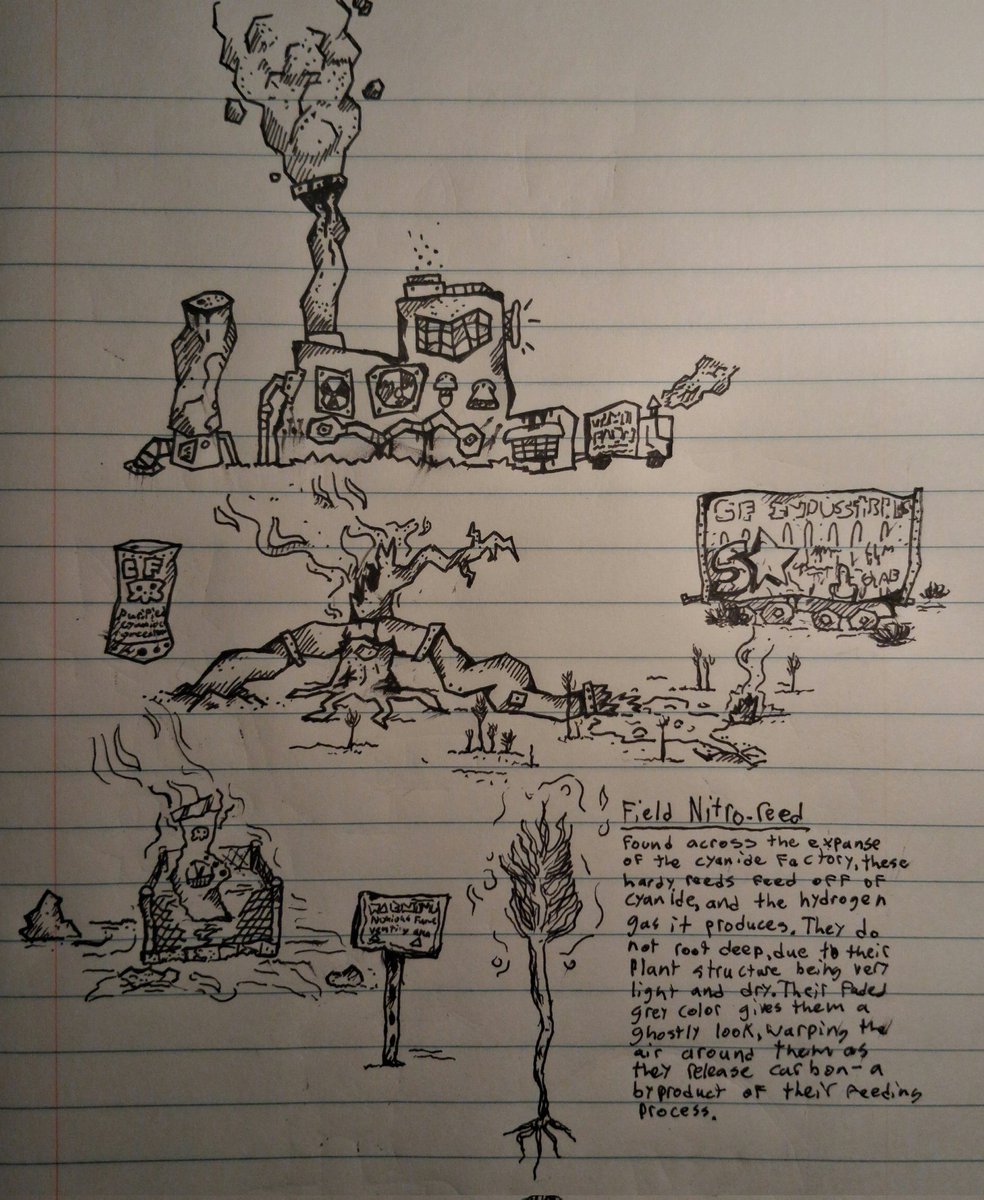 GF
Purified
cyanide
GF INDUSTRIES
WARNING
Noxious Fume
venting area
Field Nitro-reed
Found across the expanse
of the cyanide factory, these
hardy reeds feed off of
cyanide, and the hydrogen
gas it produces. They do
not root deep, due to their
Plant structure being very
light and dry. Their faded
grey color gives them a
ghostly look, warping the
air around them as
they release carbon- a
byproduct of their feeding
process.